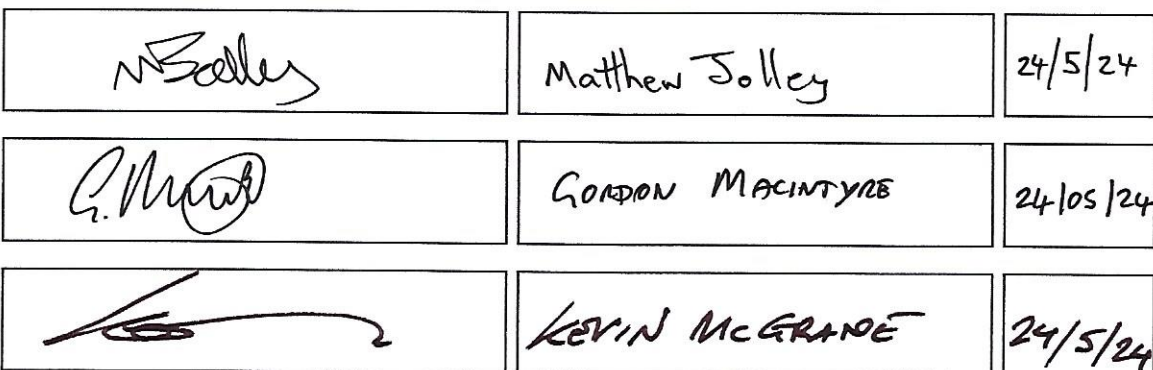 Matthew Jolley 24/5/24
GORDON MACINTYRE 24/05/24
KEVIN MCGRANE 24/5/24